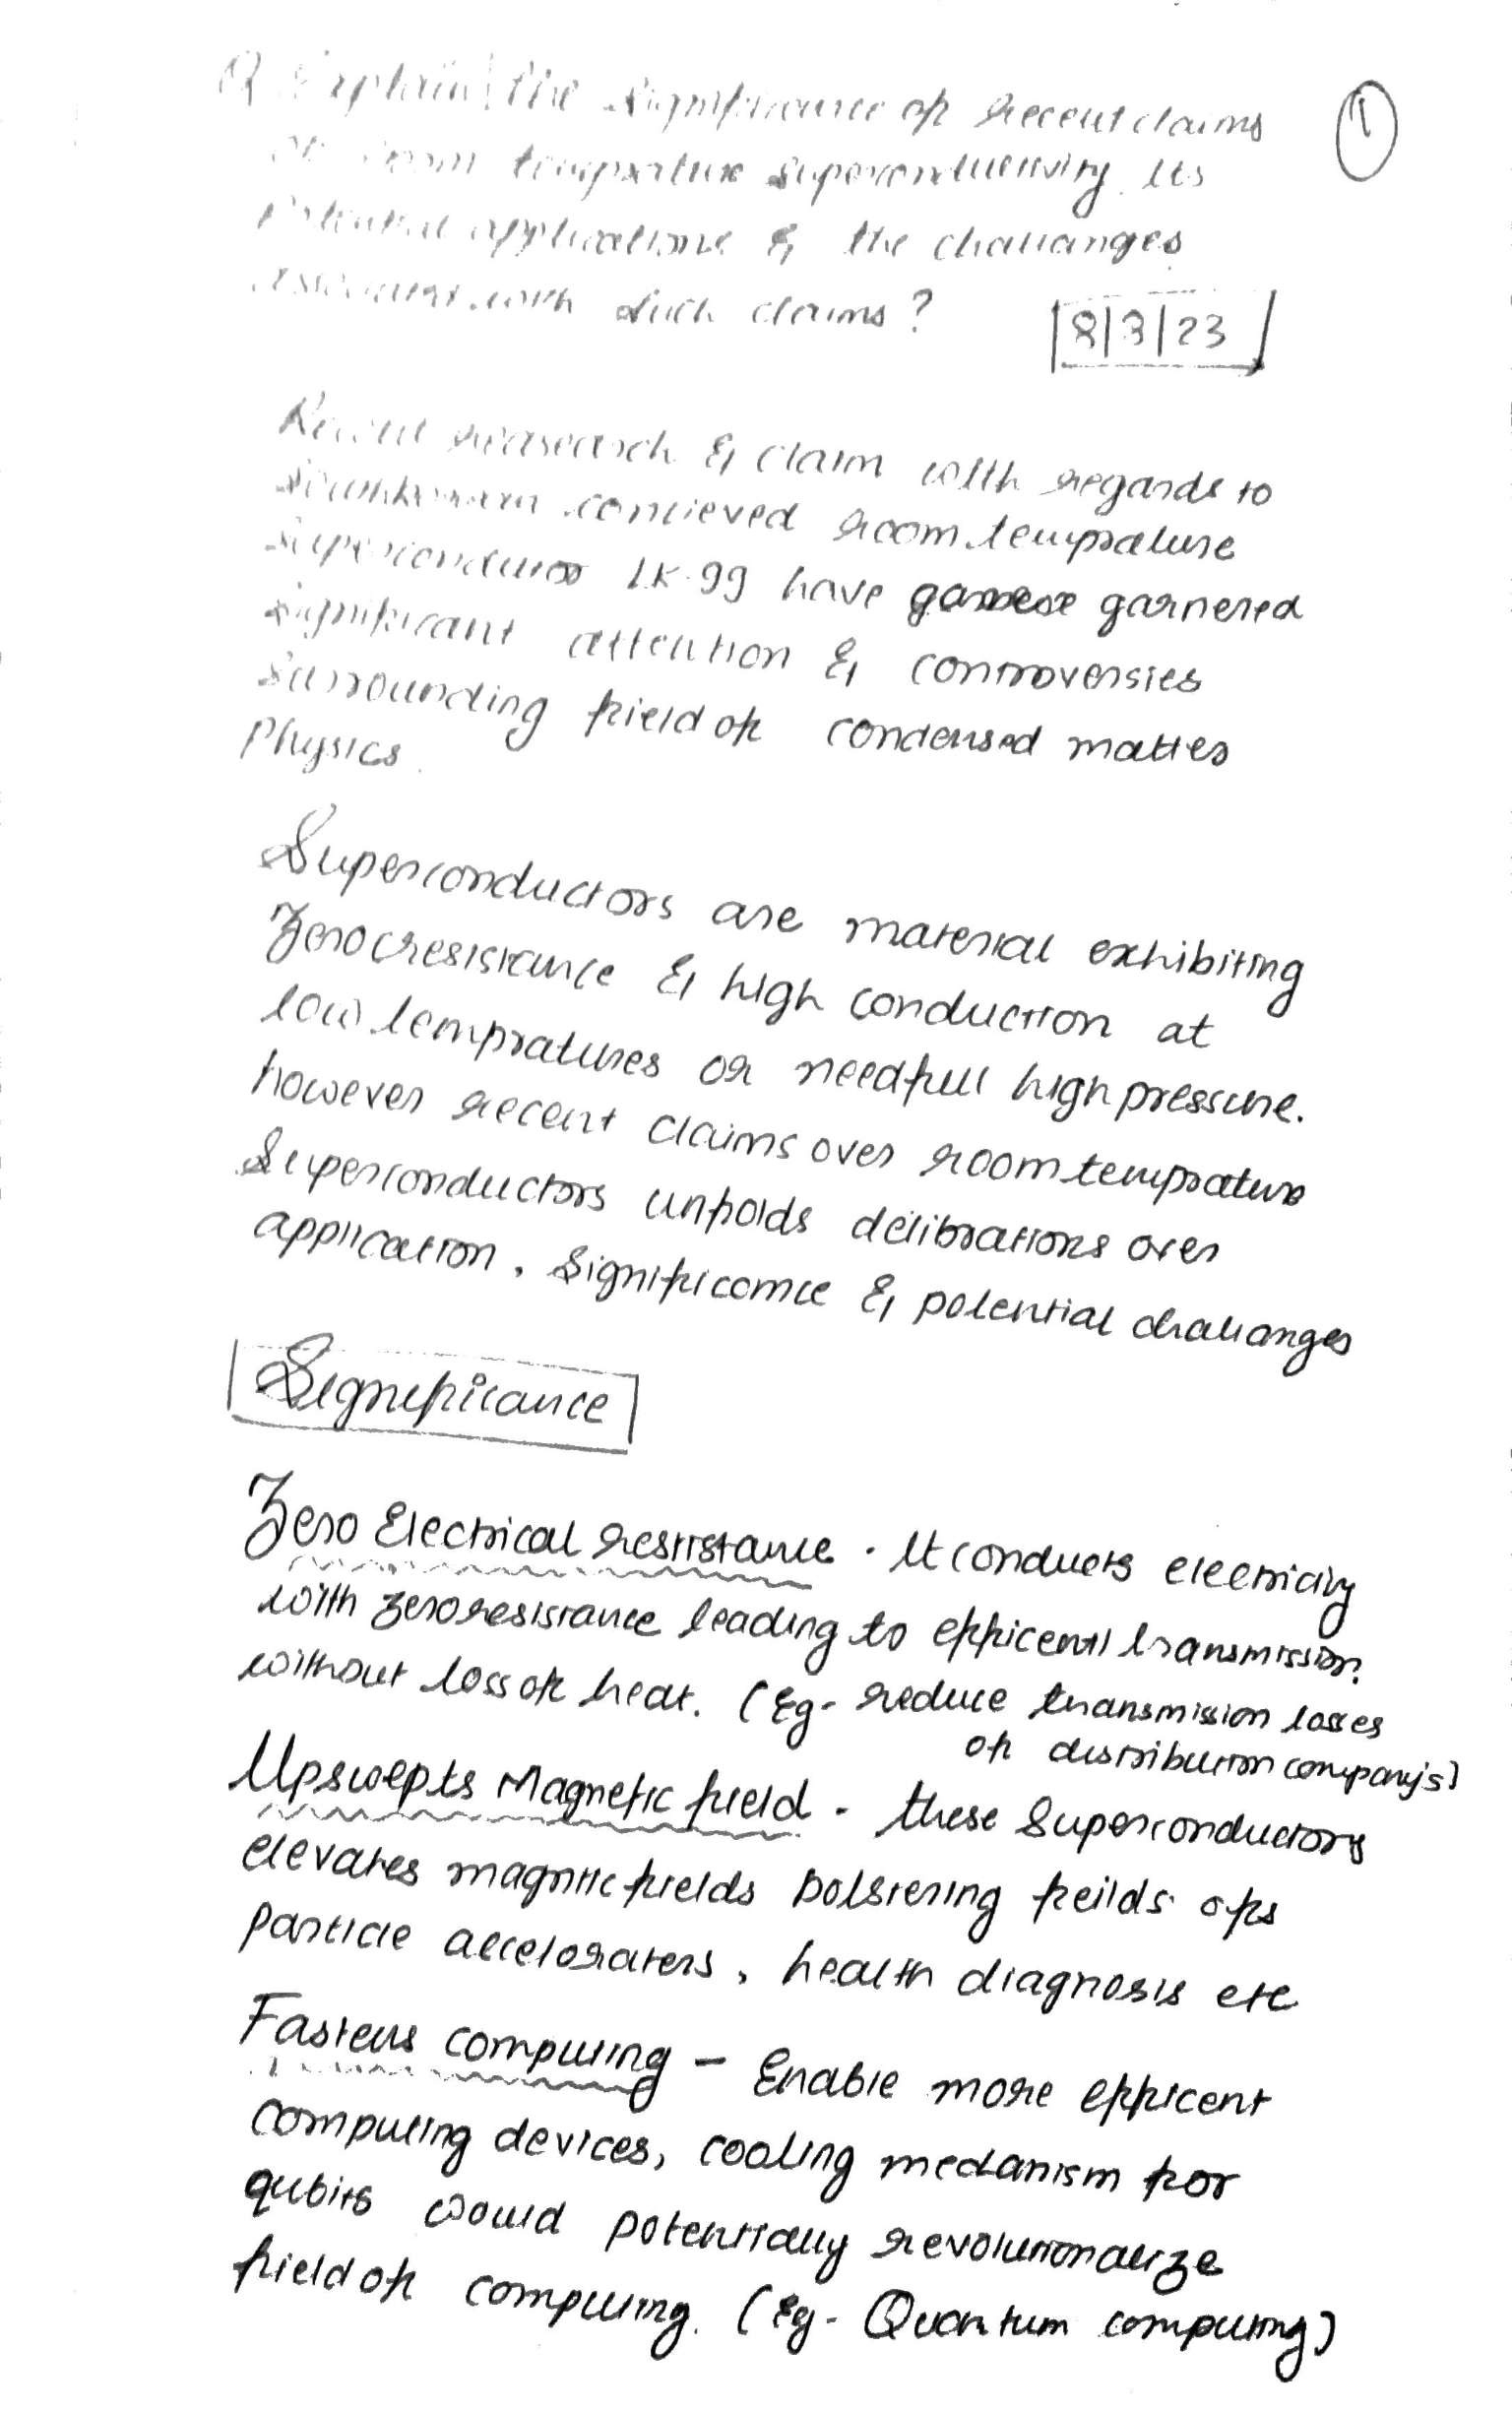 Q Explain the significance of recent claims
of room temprature superconductivity. Its
Potential applications & the challanges
associated with such claims?
①
8/3/23
Recent reasearch & claim with regards to
Southkorean concieved room temprature
Superconductor LK-99 have garnered
significant attention & controversies
surrounding field of condensed matter
Physics.
Superconductors are material exhibiting
Zero resistance & high conduction at
low tempratures or needfull high pressure.
however recent claims over room temprature
Superconductors unfolds delibrations over
application, significance & potential challanges
Significance
Zero Electrical resistance - It conducts electricity
with zero resistance leading to efficent transmission
without loss of heat. (Eg- reduce transmission losses
of distribution company's)
Upswepts Magnetic field - these Superconductors
elevates magntic fields bolstering feilds ofs
Particle acceloraters, health diagnosis etc
Fastens computing - Enable more efficent
computing devices, cooling mechanism for
qubits would potentially revolutionalize
field of computing. (Eg- Quantum computing)